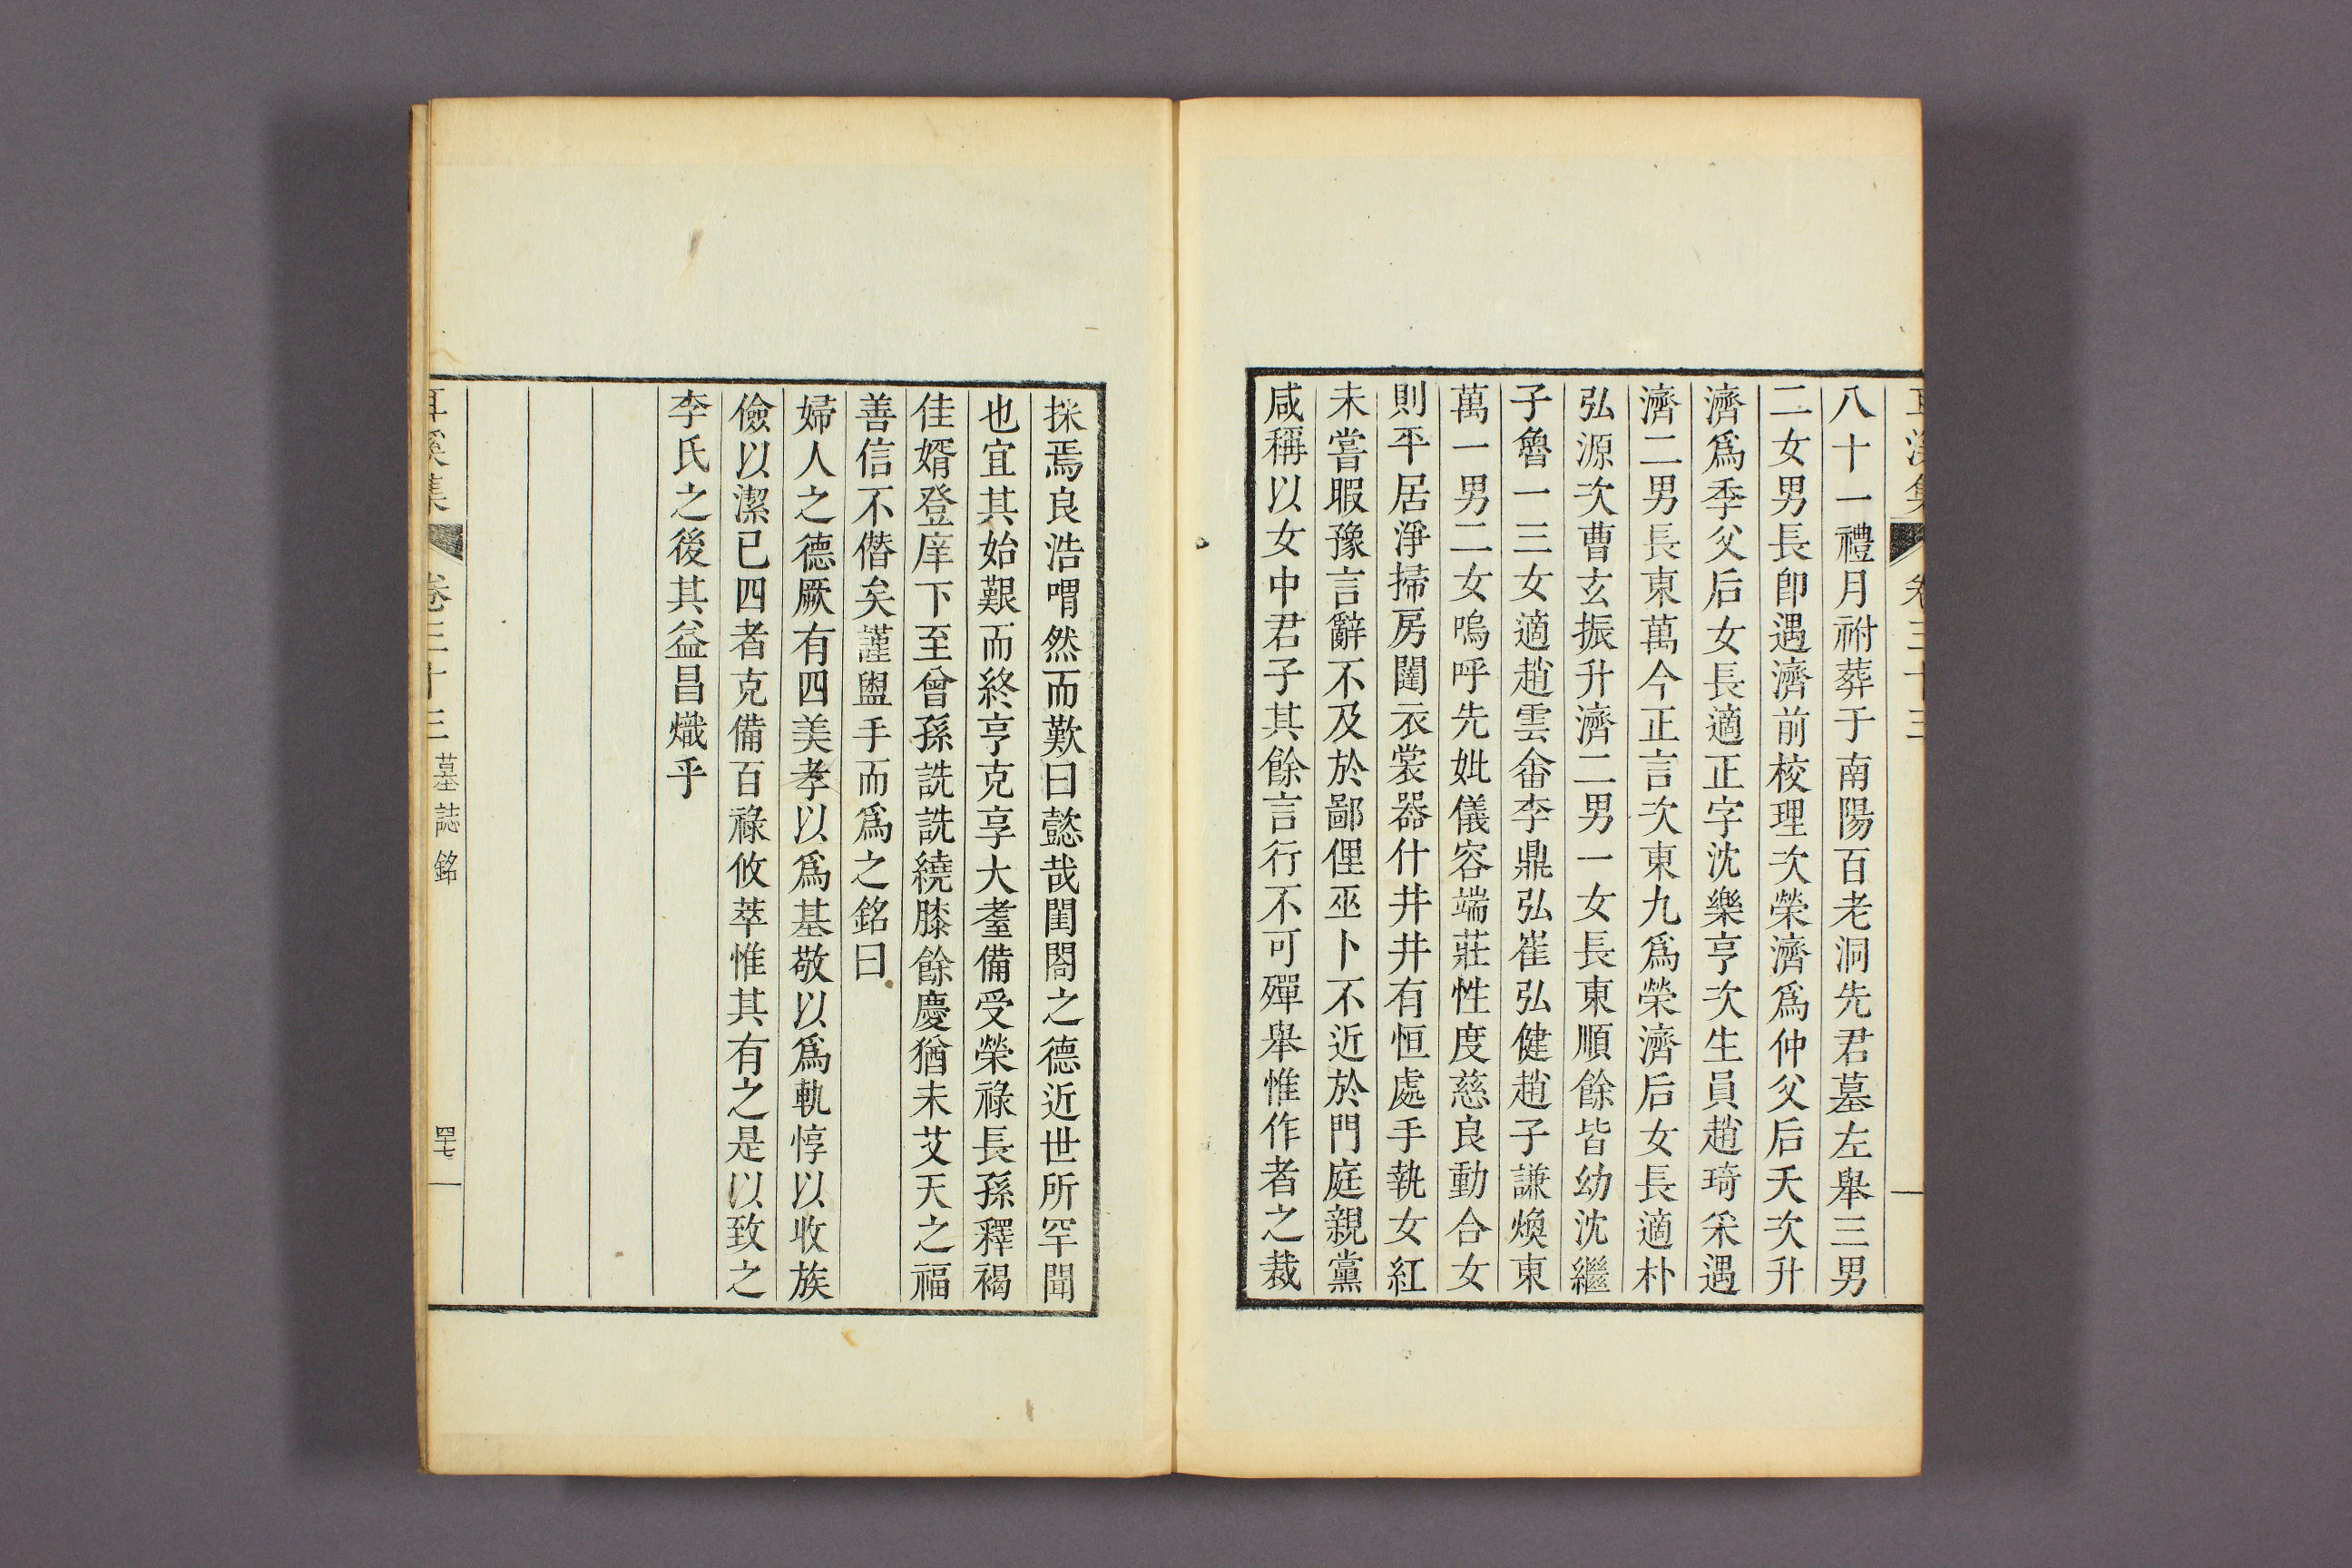 耳溪集 卷三十三
八十一禮月祔葬于南陽百老洞先君墓左舉三男
二女男長卽遇濟前校理次榮濟爲仲父后夭次升
濟爲季父后女長適正字沈樂亨次生員趙琦采遇
濟二男長東萬今正言次東九爲榮濟后女長適朴
弘源次曹玄振升濟二男一女長東順餘皆幼沈繼
子魯一三女適趙雲畬李鼎弘崔弘健趙子謙煥東
萬一男二女嗚呼先妣儀容端莊性度慈良動合女
則平居淨掃房闥衣裳器什井井有恒處手執女紅
未嘗暇豫言辭不及於鄙俚巫卜不近於門庭親黨
咸稱以女中君子其餘言行不可殫舉惟作者之裁
採焉良浩喟然而歎曰懿哉閨閤之德近世所罕聞
也宜其始艱而終亨克享大耋備受榮祿長孫釋褐
佳婿登庠下至曾孫詵詵繞膝餘慶猶未艾天之福
善信不僭矣謹盥手而爲之銘曰
婦人之德厥有四美孝以爲基敬以爲軌惇以收族
儉以潔已四者克備百祿攸萃惟其有之是以致之
李氏之後其益昌熾乎
耳溪集 卷三十三 墓誌銘 四七